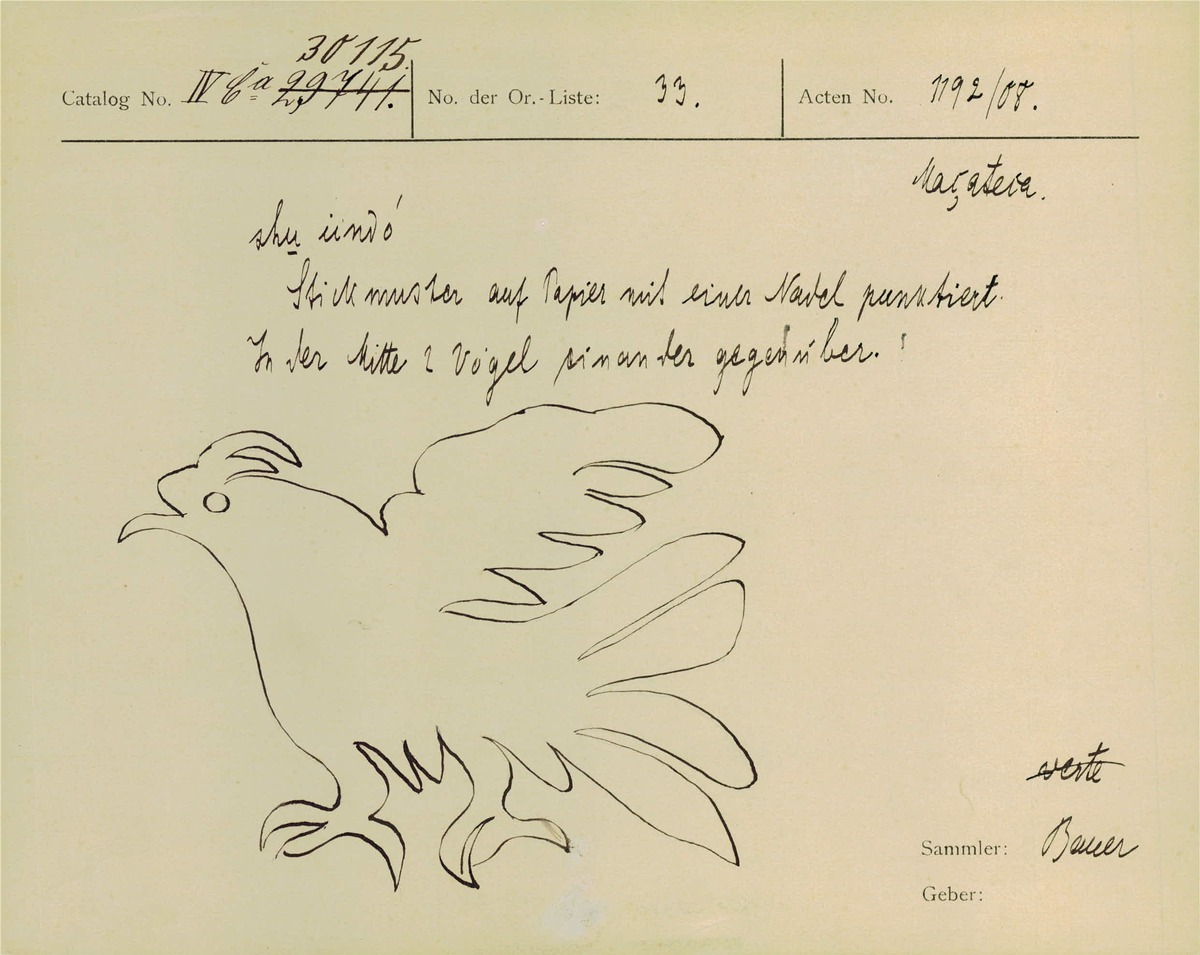 30115.
Catalog No. IV Ca 29741. No. der Or.-Liste: 33. Acten No. 1192/08.
Maçateca.
shu indó
Stickmuster auf Papier mit einer Nadel punktiert.
In der Mitte 2 Vögel einander gegenüber.
verte
Sammler: Bauer
Geber: